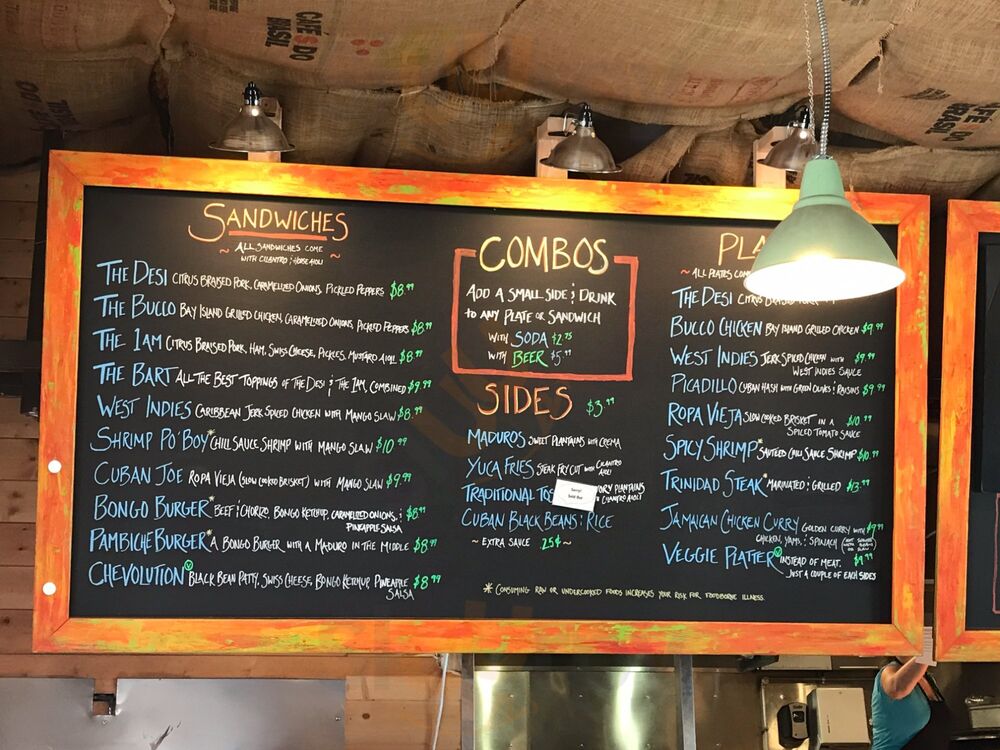 CAFÉS DO
BRASIL
CAFÉ DO
BRASIL
SANDWICHES
~ ALL SANDWICHES COME ~
WITH CILANTRO & HORSE AIOLI
THE DESI CITRUS BRAISED PORK, CARAMELIZED ONIONS, PICKLED PEPPERS $8.99
THE BUCCO BAY ISLAND GRILLED CHICKEN, CARAMELIZED ONIONS, PICKLED PEPPERS $8.99
THE 1AM CITRUS BRAISED PORK, HAM, SWISS CHEESE, PICKLES, MUSTARD AIOLI $8.99
THE BART ALL THE BEST TOPPINGS OF THE DESI & THE 1AM, COMBINED $9.99
WEST INDIES CARIBBEAN JERK SPICED CHICKEN WITH MANGO SLAW $8.99
SHRIMP PO'BOY* CHILI SAUCE SHRIMP WITH MANGO SLAW $10.99
CUBAN JOE ROPA VIEJA (SLOW COOKED BRISKET) WITH MANGO SLAW $9.99
BONGO BURGER* BEEF & CHORIZO. BONGO KETCHUP, CARAMELIZED ONIONS, & $8.99
PINEAPPLE SALSA
PAMBICHE BURGER* A BONGO BURGER WITH A MADURO IN THE MIDDLE $8.99
CHEVOLUTION Ⓥ BLACK BEAN PATTY, SWISS CHEESE, BONGO KETCHUP PINEAPPLE $8.99
SALSA
COMBOS
ADD A SMALL SIDE & DRINK
TO ANY PLATE OR SANDWICH
WITH SODA $2.75
WITH BEER $5.99
SIDES $3.99
MADUROS SWEET PLANTAINS WITH CREMA
YUCA FRIES STEAK FRY CUT WITH CILANTRO
AIOLI
TRADITIONAL SAVORY PLANTAINS
CILANTRO AIOLI
Sorry!
Sold Out
CUBAN BLACK BEANS & RICE
~ EXTRA SAUCE .25¢ ~
* CONSUMING RAW OR UNDERCOOKED FOODS INCREASES YOUR RISK FOR FOODBORNE ILLNESS.
PLA
~ ALL PLATES COM
THE DESI CITRUS BRAISED PORK
BUCCO CHICKEN BAY ISLAND GRILLED CHICKEN $9.99
WEST INDIES JERK SPICED CHICKEN WITH $9.99
WEST INDIES SAUCE
PICADILLO CUBAN HASH WITH GREEN OLIVES & RAISINS $9.99
ROPA VIEJA SLOW COOKED BRISKET IN A $10.99
SPICED TOMATO SAUCE
SPICY SHRIMP* SAUTEED CHILI SAUCE SHRIMP $10.99
TRINIDAD STEAK* MARINATED & GRILLED $13.99
JAMAICAN CHICKEN CURRY GOLDEN CURRY WITH $9.99
CHICKEN, YAMS, & SPINACH
VEGGIE PLATTER Ⓥ INSTEAD OF MEAT, $9.99
JUST A COUPLE OF EACH SIDES